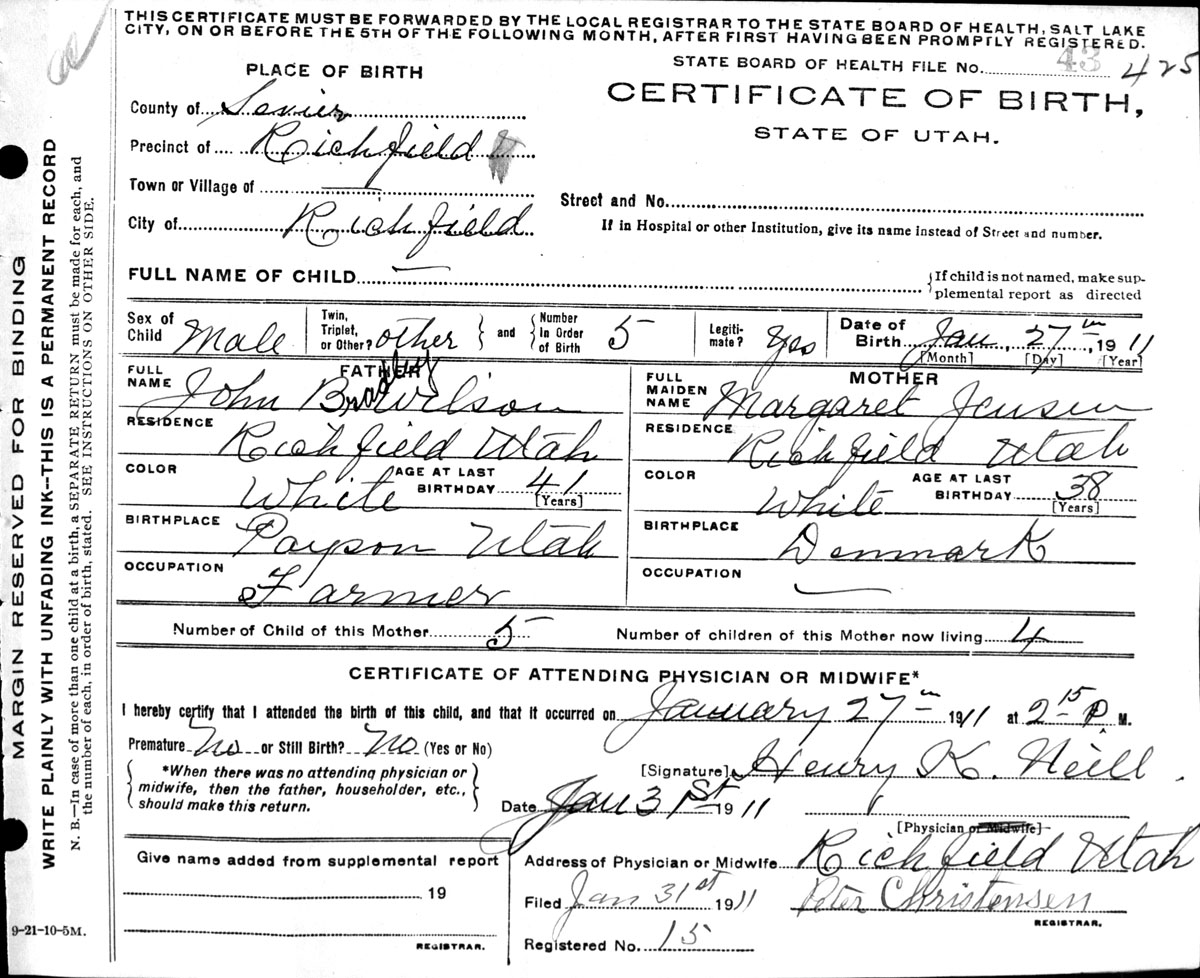 THIS CERTIFICATE MUST BE FORWARDED BY THE LOCAL REGISTRAR TO THE STATE BOARD OF HEALTH, SALT LAKE
CITY, ON OR BEFORE THE 5TH OF THE FOLLOWING MONTH, AFTER FIRST HAVING BEEN PROMPTLY REGISTERED.
STATE BOARD OF HEALTH FILE No. 43 425
PLACE OF BIRTH
CERTIFICATE OF BIRTH,
STATE OF UTAH.
County of Sevier
Precinct of Richfield
Town or Village of —
Street and No.
City of Richfield
If in Hospital or other Institution, give its name instead of Street and number.
FULL NAME OF CHILD —
{If child is not named, make sup-
plemental report as directed
Sex of Child Male
Twin, Triplet, or Other? other } and { Number In Order of Birth 5
Legiti-mate? Yes
Date of Birth Jan 27th, 1911
[Month] [Day] [Year]
FATHER
FULL NAME John Bradley Wilson
RESIDENCE Richfield Utah
COLOR White AGE AT LAST BIRTHDAY 41 [Years]
BIRTHPLACE Payson Utah
OCCUPATION Farmer
MOTHER
FULL MAIDEN NAME Margaret Jensen
RESIDENCE Richfield Utah
COLOR White AGE AT LAST BIRTHDAY 38 [Years]
BIRTHPLACE Denmark
OCCUPATION —
Number of Child of this Mother 5 Number of children of this Mother now living 4
CERTIFICATE OF ATTENDING PHYSICIAN OR MIDWIFE*
I hereby certify that I attended the birth of this child, and that it occurred on January 27th 1911 at 2 15 P. M.
Premature No or Still Birth? No (Yes or No)
{ *When there was no attending physician or
midwife, then the father, householder, etc.,
should make this return. }
[Signature] Henry K. Neill.
Date Jan 31st 1911
[Physician or Midwife]
Give name added from supplemental report
19
REGISTRAR.
Address of Physician or Midwife Richfield Utah
Filed Jan 31st 1911 Peter Christensen
REGISTRAR.
Registered No. 15
9-21-10-5M.
MARGIN RESERVED FOR BINDING
WRITE PLAINLY WITH UNFADING INK--THIS IS A PERMANENT RECORD
N. B.—In case of more than one child at a birth, a SEPARATE RETURN must be made for each, and
the number of each, in order of birth, stated. SEE INSTRUCTIONS ON OTHER SIDE.